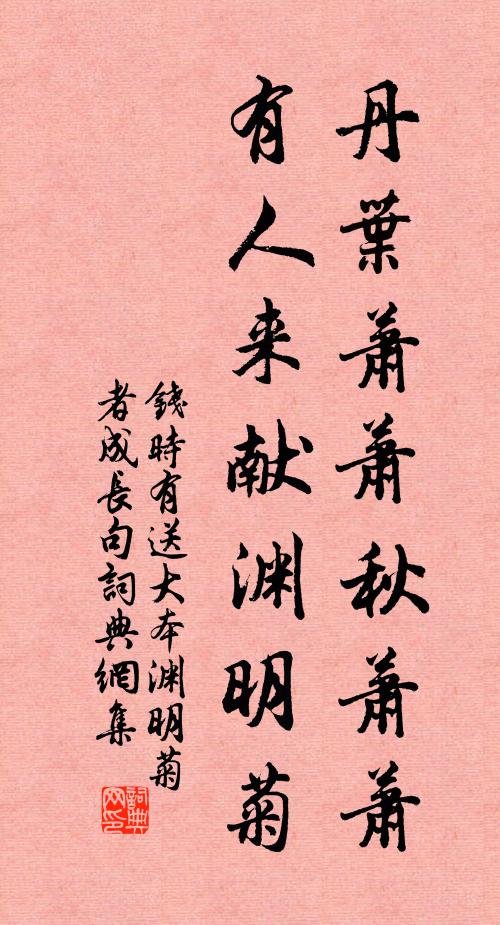 丹葉蕭蕭秋蕭蕭
有人来献渊明菊
錢時有送大本渊明菊
者成長句詞典網集
詞典網印